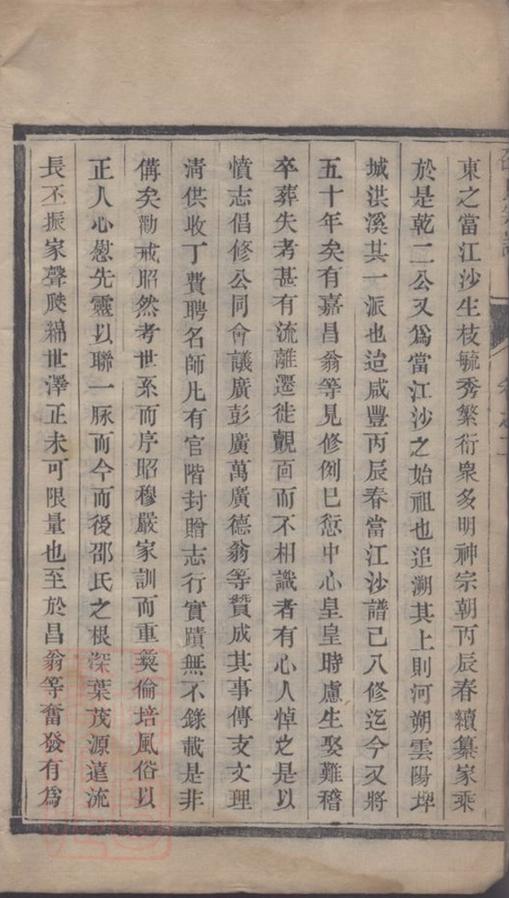 東之當江沙生枝毓秀繁衍衆多明神宗朝丙辰春續纂家乘
於是乾二公又爲當江沙之始祖也追溯其上則河朔雲陽埤
城洪溪其一派也迨咸豐丙辰春當江沙譜已八修迄今又將
五十年矣有嘉昌翁等見修例已愆中心皇皇時慮生娶難稽
卒葬失考甚有流離遷徙覿面而不相識者有心人悼之是以
憤志倡修公同會議廣彭廣萬廣德翁等贊成其事傳支文理
清供收丁費聘名師凡有官階封贈志行實蹟無不錄載是非
備矣勸戒昭然考世系而序昭穆嚴家訓而重彞倫培風俗以
正人心慰先靈以聯一脉而今而後邵氏之根深葉茂源遠流
長丕振家聲賧綿世澤正未可限量也至於昌翁等奮發有爲